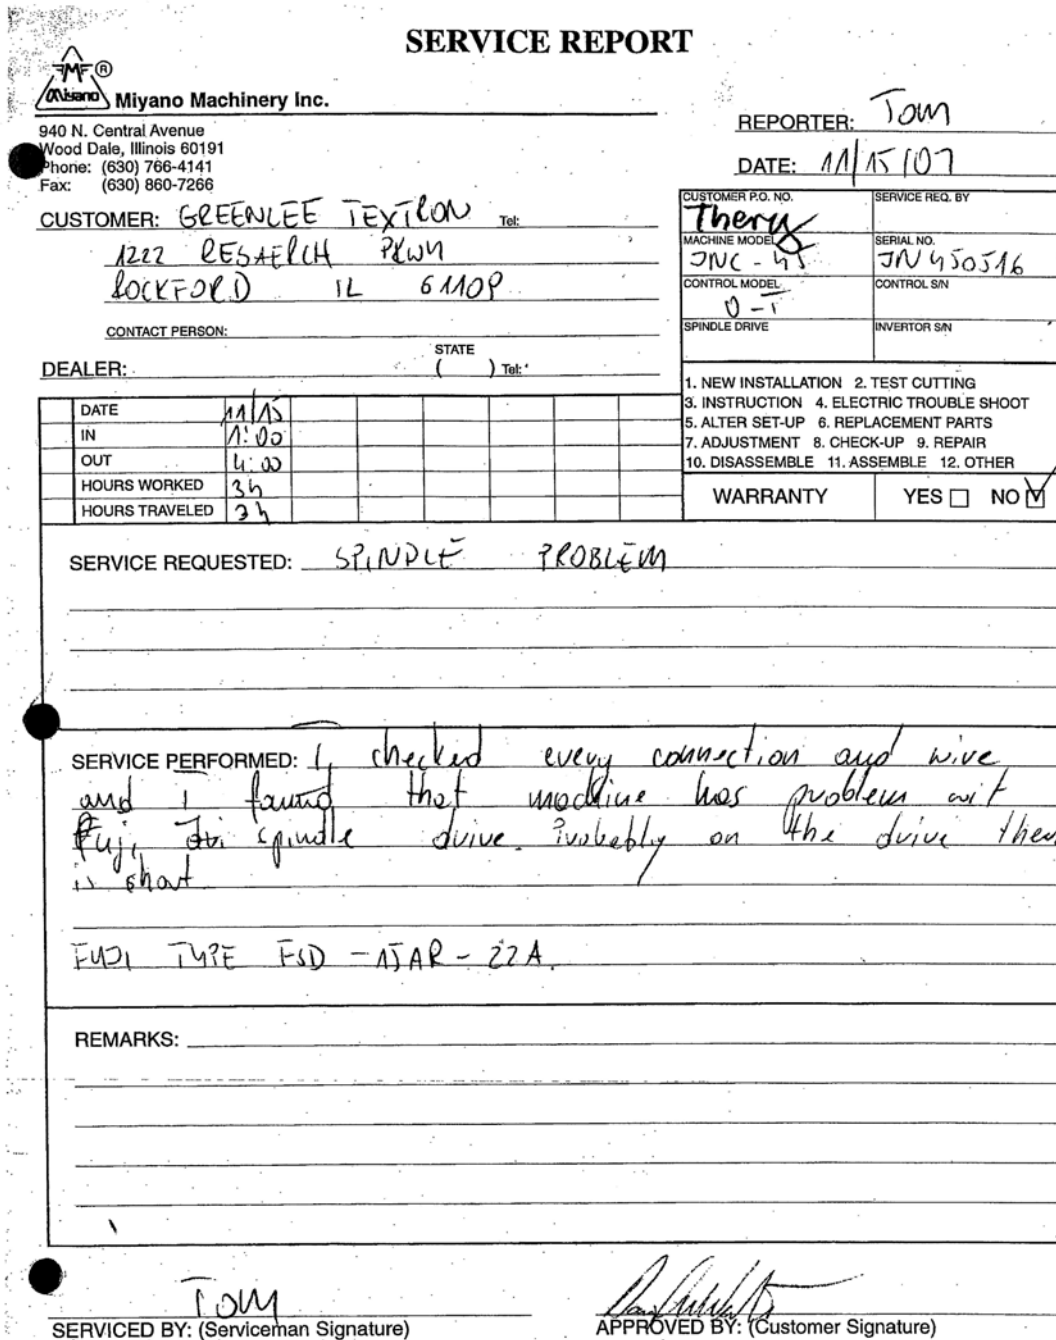 SERVICE REPORT
MF ®
Miyano Miyano Machinery Inc.
940 N. Central Avenue
Wood Dale, Illinois 60191
Phone: (630) 766-4141
Fax: (630) 860-7266
REPORTER: Tom
DATE: 11/15/07
CUSTOMER: GREENLEE TEXTRON Tel:
1222 RESAERCH PKWY
ROCKFORD IL 61109
CONTACT PERSON:
STATE
DEALER: ( ) Tel:
CUSTOMER P.O. NO. SERVICE REQ. BY
MACHINE MODEL SERIAL NO.
JNC-45 JN450516
CONTROL MODEL CONTROL S/N
0-T
SPINDLE DRIVE INVERTOR S/N
1. NEW INSTALLATION 2. TEST CUTTING
3. INSTRUCTION 4. ELECTRIC TROUBLE SHOOT
5. ALTER SET-UP 6. REPLACEMENT PARTS
7. ADJUSTMENT 8. CHECK-UP 9. REPAIR
10. DISASSEMBLE 11. ASSEMBLE 12. OTHER
WARRANTY YES NO
DATE 11/15
IN 1:00
OUT 4:00
HOURS WORKED 3h
HOURS TRAVELED 3h
SERVICE REQUESTED: SPINDLE PROBLEM
SERVICE PERFORMED: I checked every connection and wire
and I found that machine has problem wit
Fuji spindle drive. Probebly on the drive ther
is short
FUJI TYPE FSD-15AR-22A.
REMARKS:
Tom
SERVICED BY: (Serviceman Signature)
APPROVED BY: (Customer Signature)